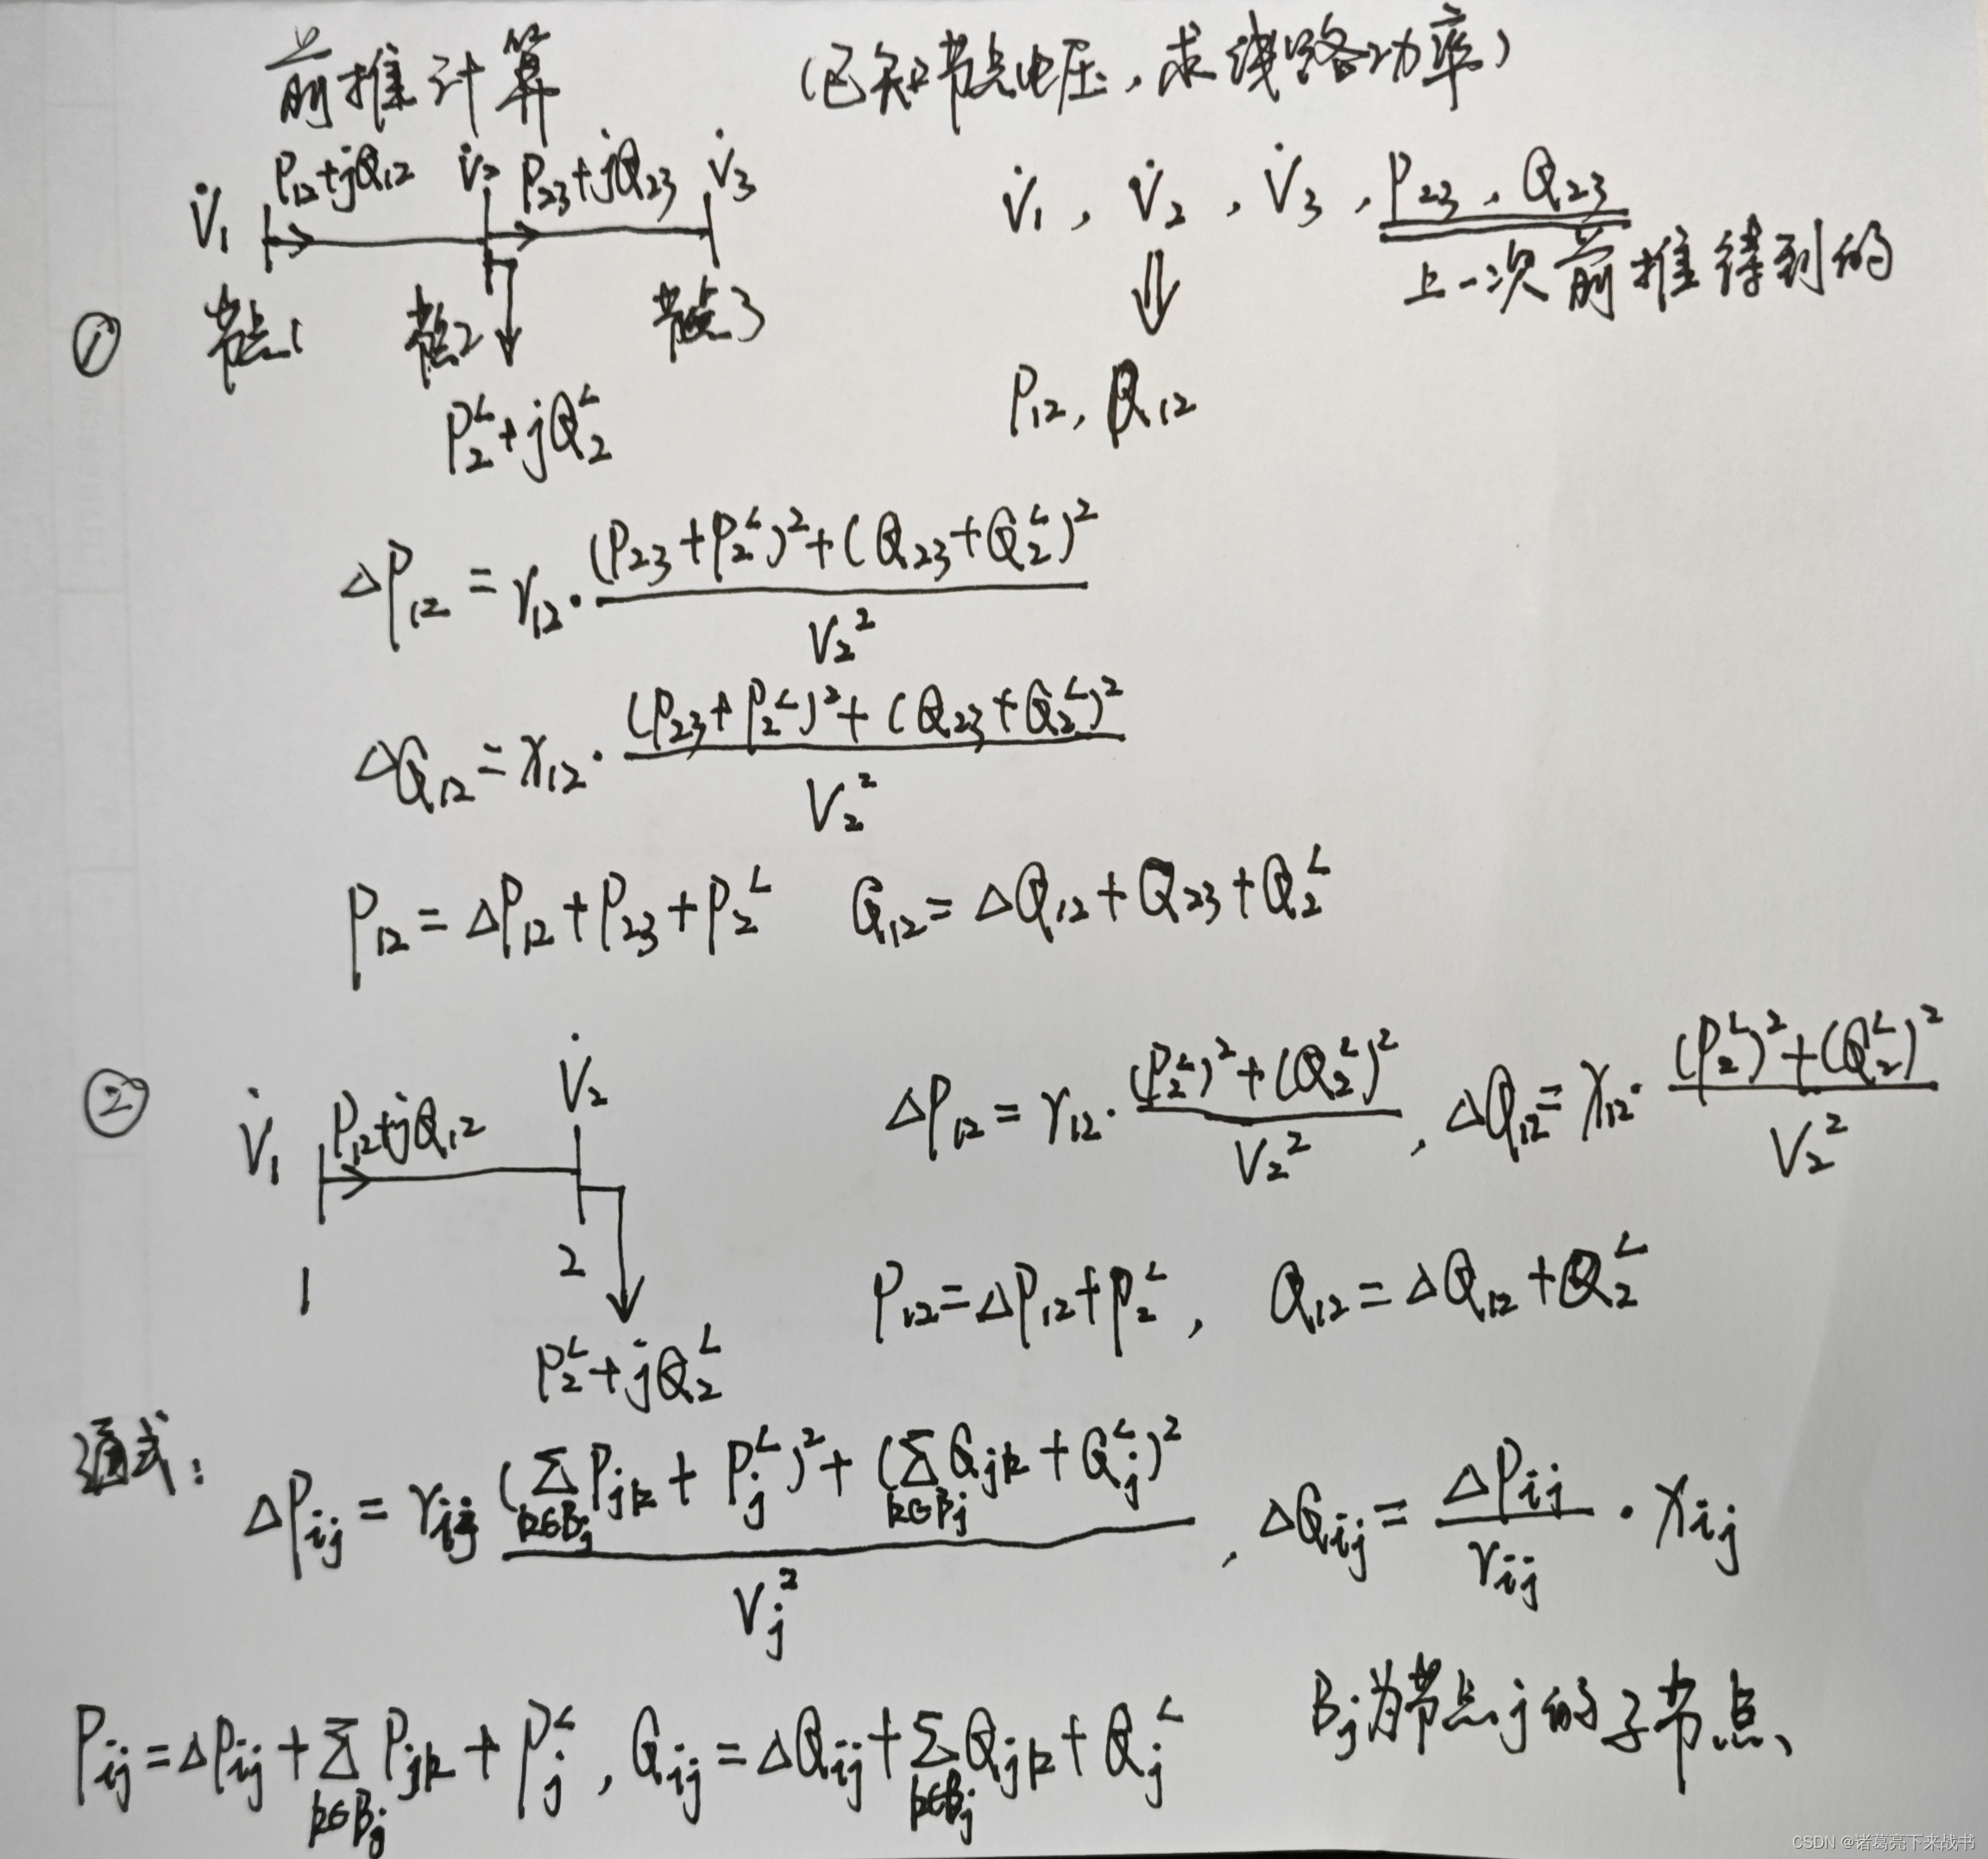 前推计算 (已知节点电压,求线路功率)
P₁₂+jQ₁₂ V̇₂ P₂₃+jQ₂₃ V̇₃
V̇₁
V̇₁, V̇₂, V̇₃, P₂₃, Q₂₃
上一次前推得到的
① 节点1 节点2 节点3
⇓
P₁₂, Q₁₂
P₂ᴸ+jQ₂ᴸ
ΔP₁₂ = r₁₂·((P₂₃+P₂ᴸ)²+(Q₂₃+Q₂ᴸ)²)/V₂²
ΔQ₁₂ = x₁₂·((P₂₃+P₂ᴸ)²+(Q₂₃+Q₂ᴸ)²)/V₂²
P₁₂ = ΔP₁₂+P₂₃+P₂ᴸ Q₁₂ = ΔQ₁₂+Q₂₃+Q₂ᴸ
② V̇₁ P₁₂+jQ₁₂ V̇₂
1 2
P₂ᴸ+jQ₂ᴸ
ΔP₁₂ = r₁₂·((P₂ᴸ)²+(Q₂ᴸ)²)/V₂², ΔQ₁₂ = x₁₂·((P₂ᴸ)²+(Q₂ᴸ)²)/V₂²
P₁₂=ΔP₁₂+P₂ᴸ, Q₁₂=ΔQ₁₂+Q₂ᴸ
通式: ΔP_ij = r_ij ((∑_{k∈B_j} P_jk + P_jᴸ)²+(∑_{k∈B_j} Q_jk + Q_jᴸ)²)/V_j², ΔQ_ij = ΔP_ij/r_ij · x_ij
P_ij = ΔP_ij + ∑_{k∈B_j} P_jk + P_jᴸ, Q_ij = ΔQ_ij + ∑_{k∈B_j} Q_jk + Q_jᴸ
B_j为节点j的子节点、
CSDN @诸葛亮下来战书